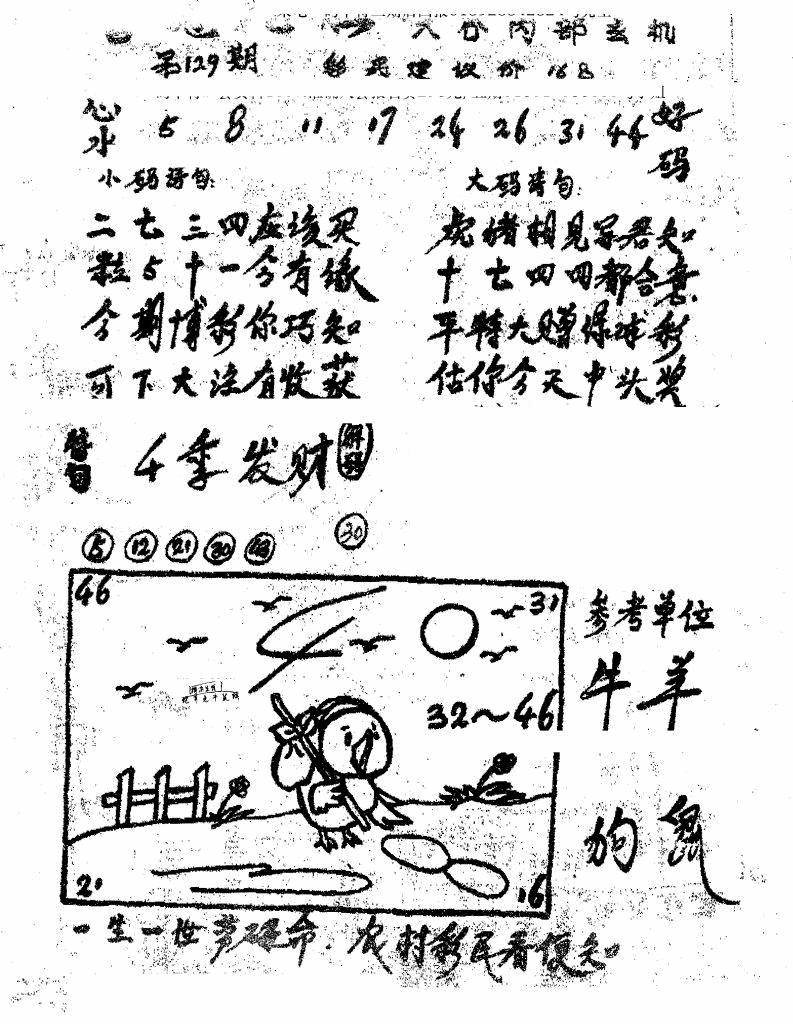 六合内部玄机
第129期 彩民建议价 168
心水 5 8 11 17 24 26 31 44 好码
小码诗句: 大码诗句:
二七三四应该买
虎猪相见写君知
粒5十一今有缘
十七四四都合意
今期博彩你巧知
平特大赠保球彩
可下大注有收获
估你今天中头奖
特句 千季发财 解码
5 12 21 30
30
46 31
参考单位
牛 羊
32~46
狗 鬼
21 16
一生一世劳碌命.农村彩民看便知